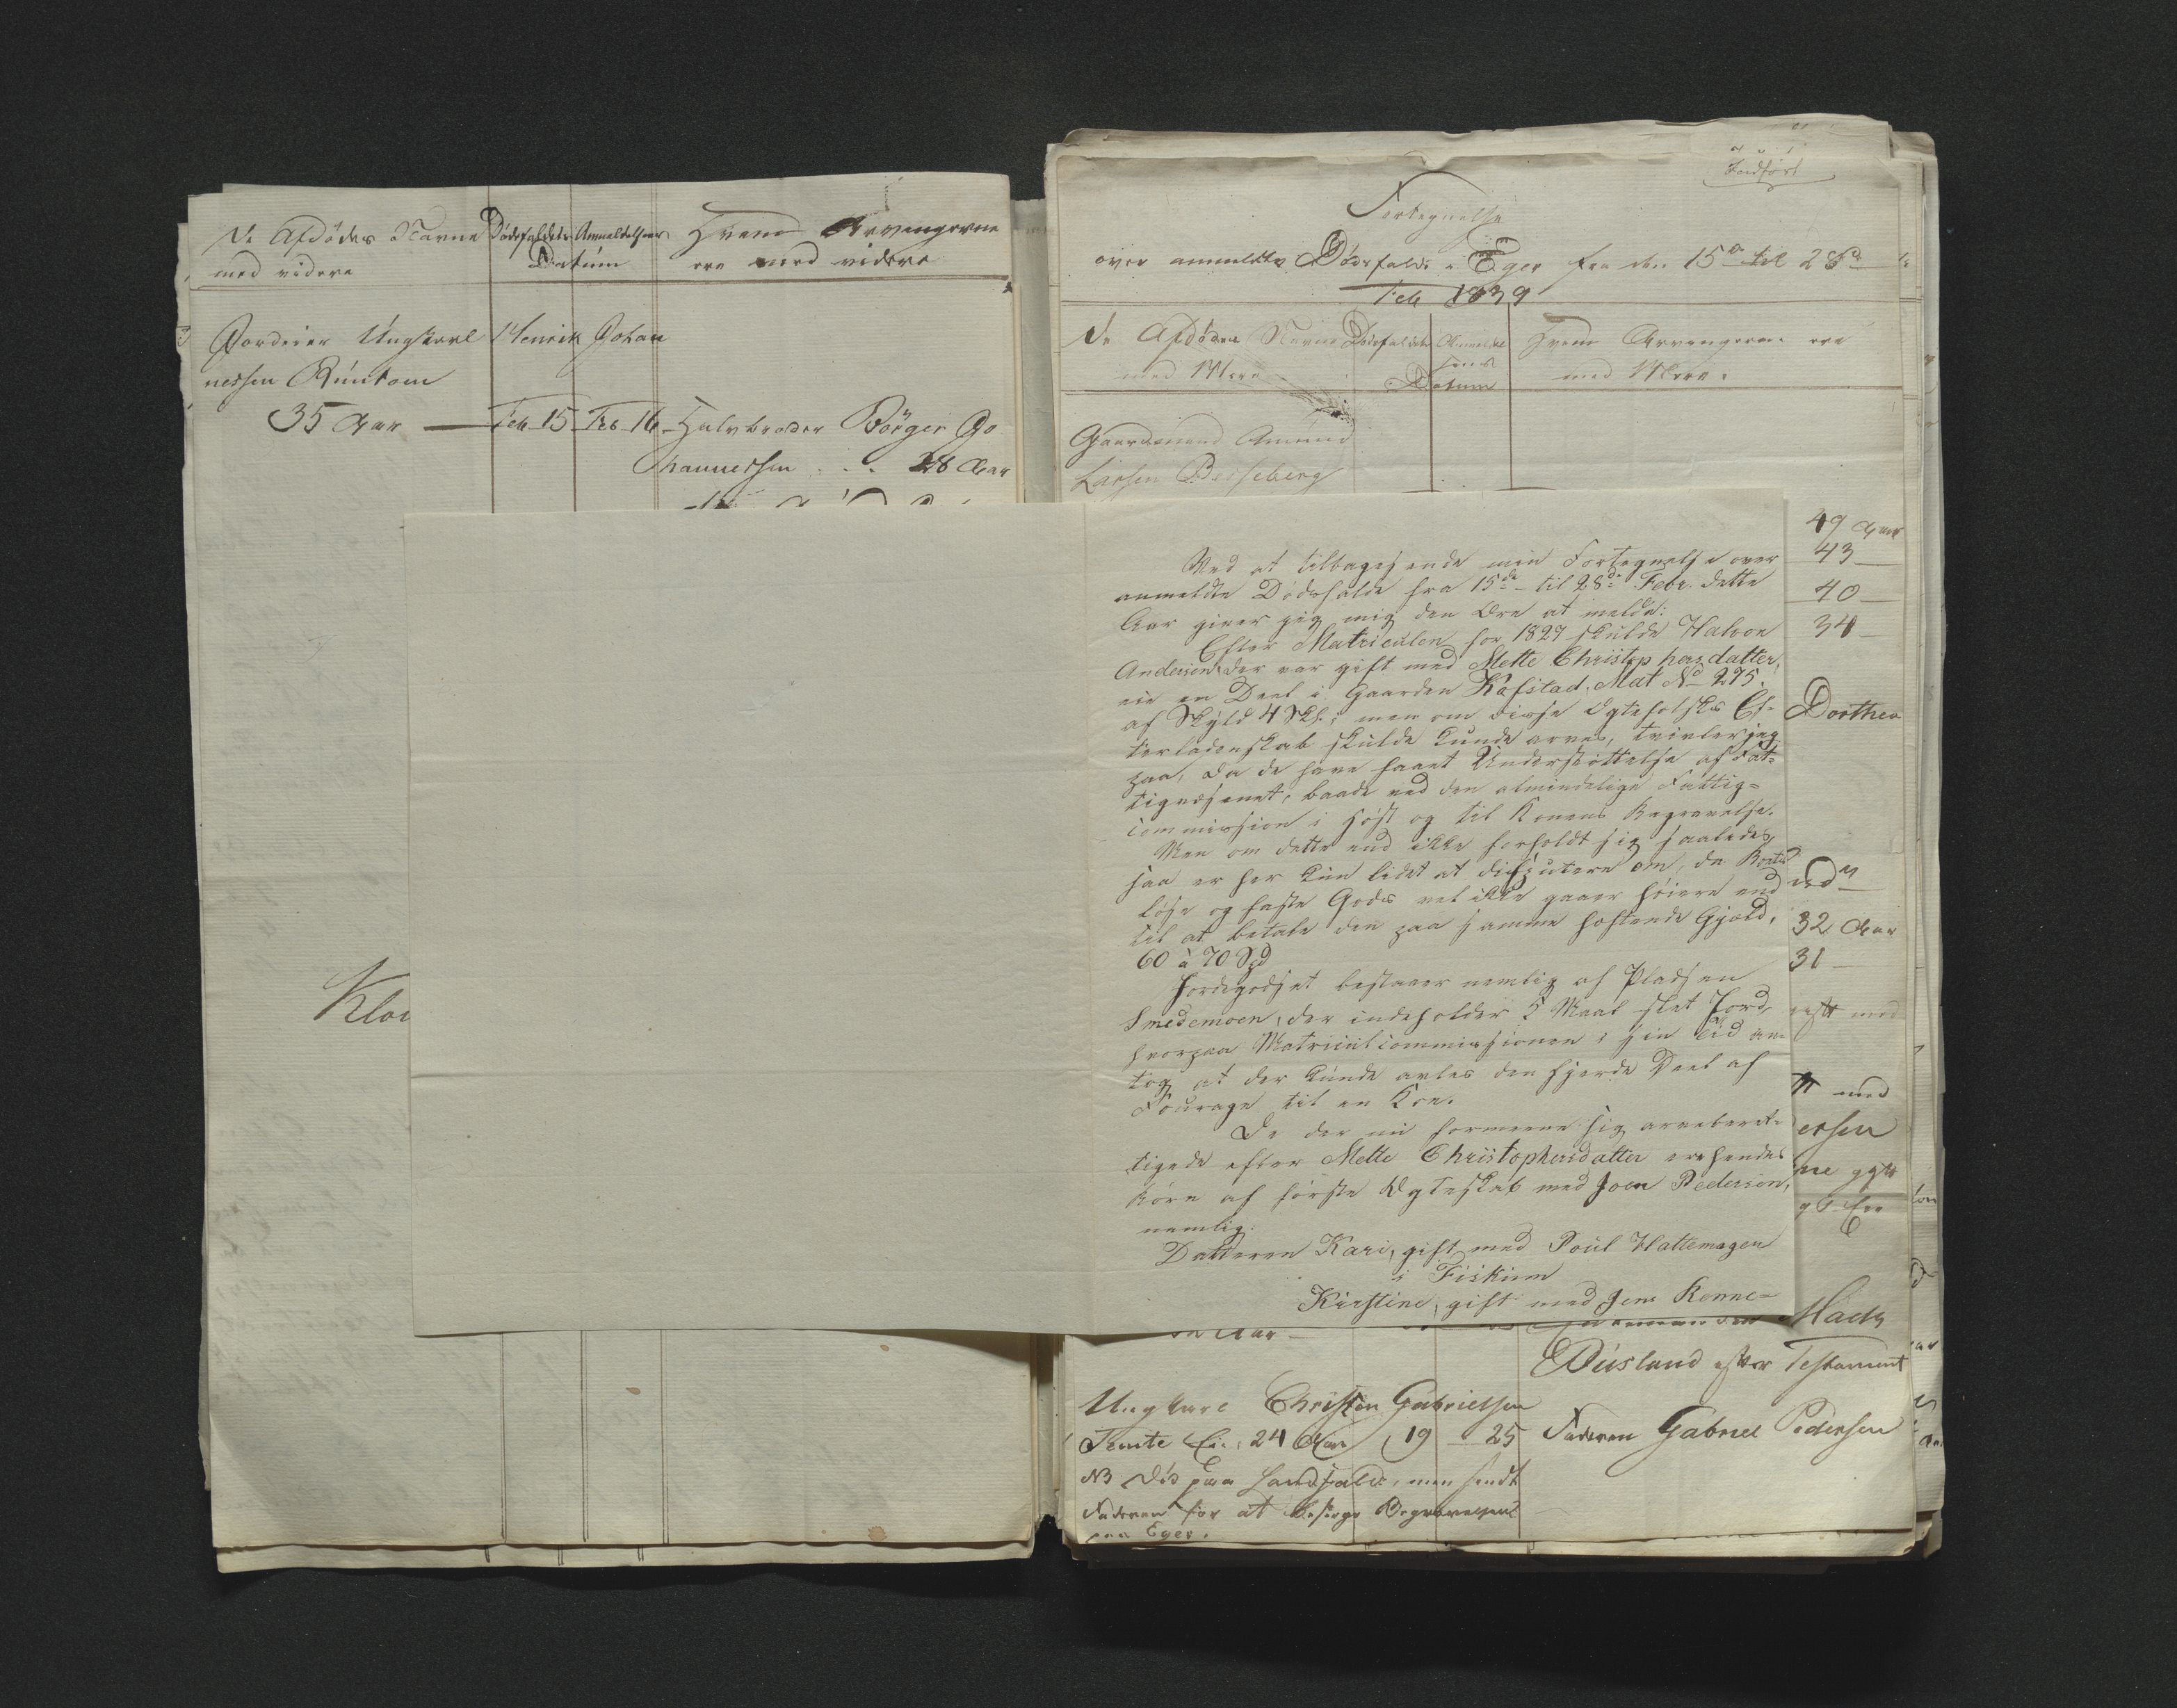 De Afdødes Navne
med videre
Dødsfaldets
Anmeldelsens
Datum
Hvem Arvingerne
ere med videre
Gardeier Ungkarl Henrik Johan
nessen
35 Aar — Feb 15 Feb 16 Halvbroder Börger Jo
hannessen . . . 28 Aar
Klo
Indført
Fortegnelse
over anmeldte Dødsfald i Eger fra den 15de til 28de
Feb 1839
De Afdødes Navne
med Mere
Dødsfaldets
Anmeldel
sens
Datum
Hvem Arvingerne ere
med Mere.
Gaardmand Amund
Larsen
49 Aar
43 —
40 —
34 —
Dorthea
32 Aar
31 —
med
ersen
Mads
Ved at tilbagesende min Fortegnelse over
anmeldte Dødsfalde fra 15de til 28de Febr. dette
Aar giver jeg mig den Ære at melde:
Efter Matriculen for 1827 skulde Halvor
Andersen, der var gift med Mette Christophersdatter,
eie en Deel i Gaarden Kafstad, Mat No 275.
af Skyld 4 Skl; men om disse Egtefolks Ef-
terladenskab skulde kunde arves, tvivler jeg
paa, da de have faaet Understöttelse af Fat-
tigvæsenet, baade ved den almindelige Fattig-
commission i Høst og til Konens Begravelse.
Men om dette end ikke forholdt sig saaledes,
saa er her kun lidet at disputere om, da Boets
løse og faste Gods vel ikke gaaer høiere end
til at betale den paa samme heftende Gjæld,
60 à 70 Spd
Jordegodset bestaaer nemlig af Pladsen
Smedemoen, der indeholder 5 Maal slet Jord,
hvorpaa Matriculcommissionen i sin Tid an-
tog at der kunde avles den fjerde Deel af
Fourage til en Koe.
De der nu formene sig arveberet-
tigede efter Mette Christophersdatter ere hendes
Börn af förste Egteskab med Joen Pedersen,
nemlig:
Datteren Kari, gift med Poul Hattemager
i Fiskum
Kirstine, gift med Jens Ronne-
Aar —
Duslund efter Testament
Ungkarl Christen Gabrielsen
Temte Eie: 24 Aar 19 — 25 Faderen Gabriel Pedersen
NB. Död paa Landfald, men sendt
Faderen for at besörge Begravelsen
paa Eger.